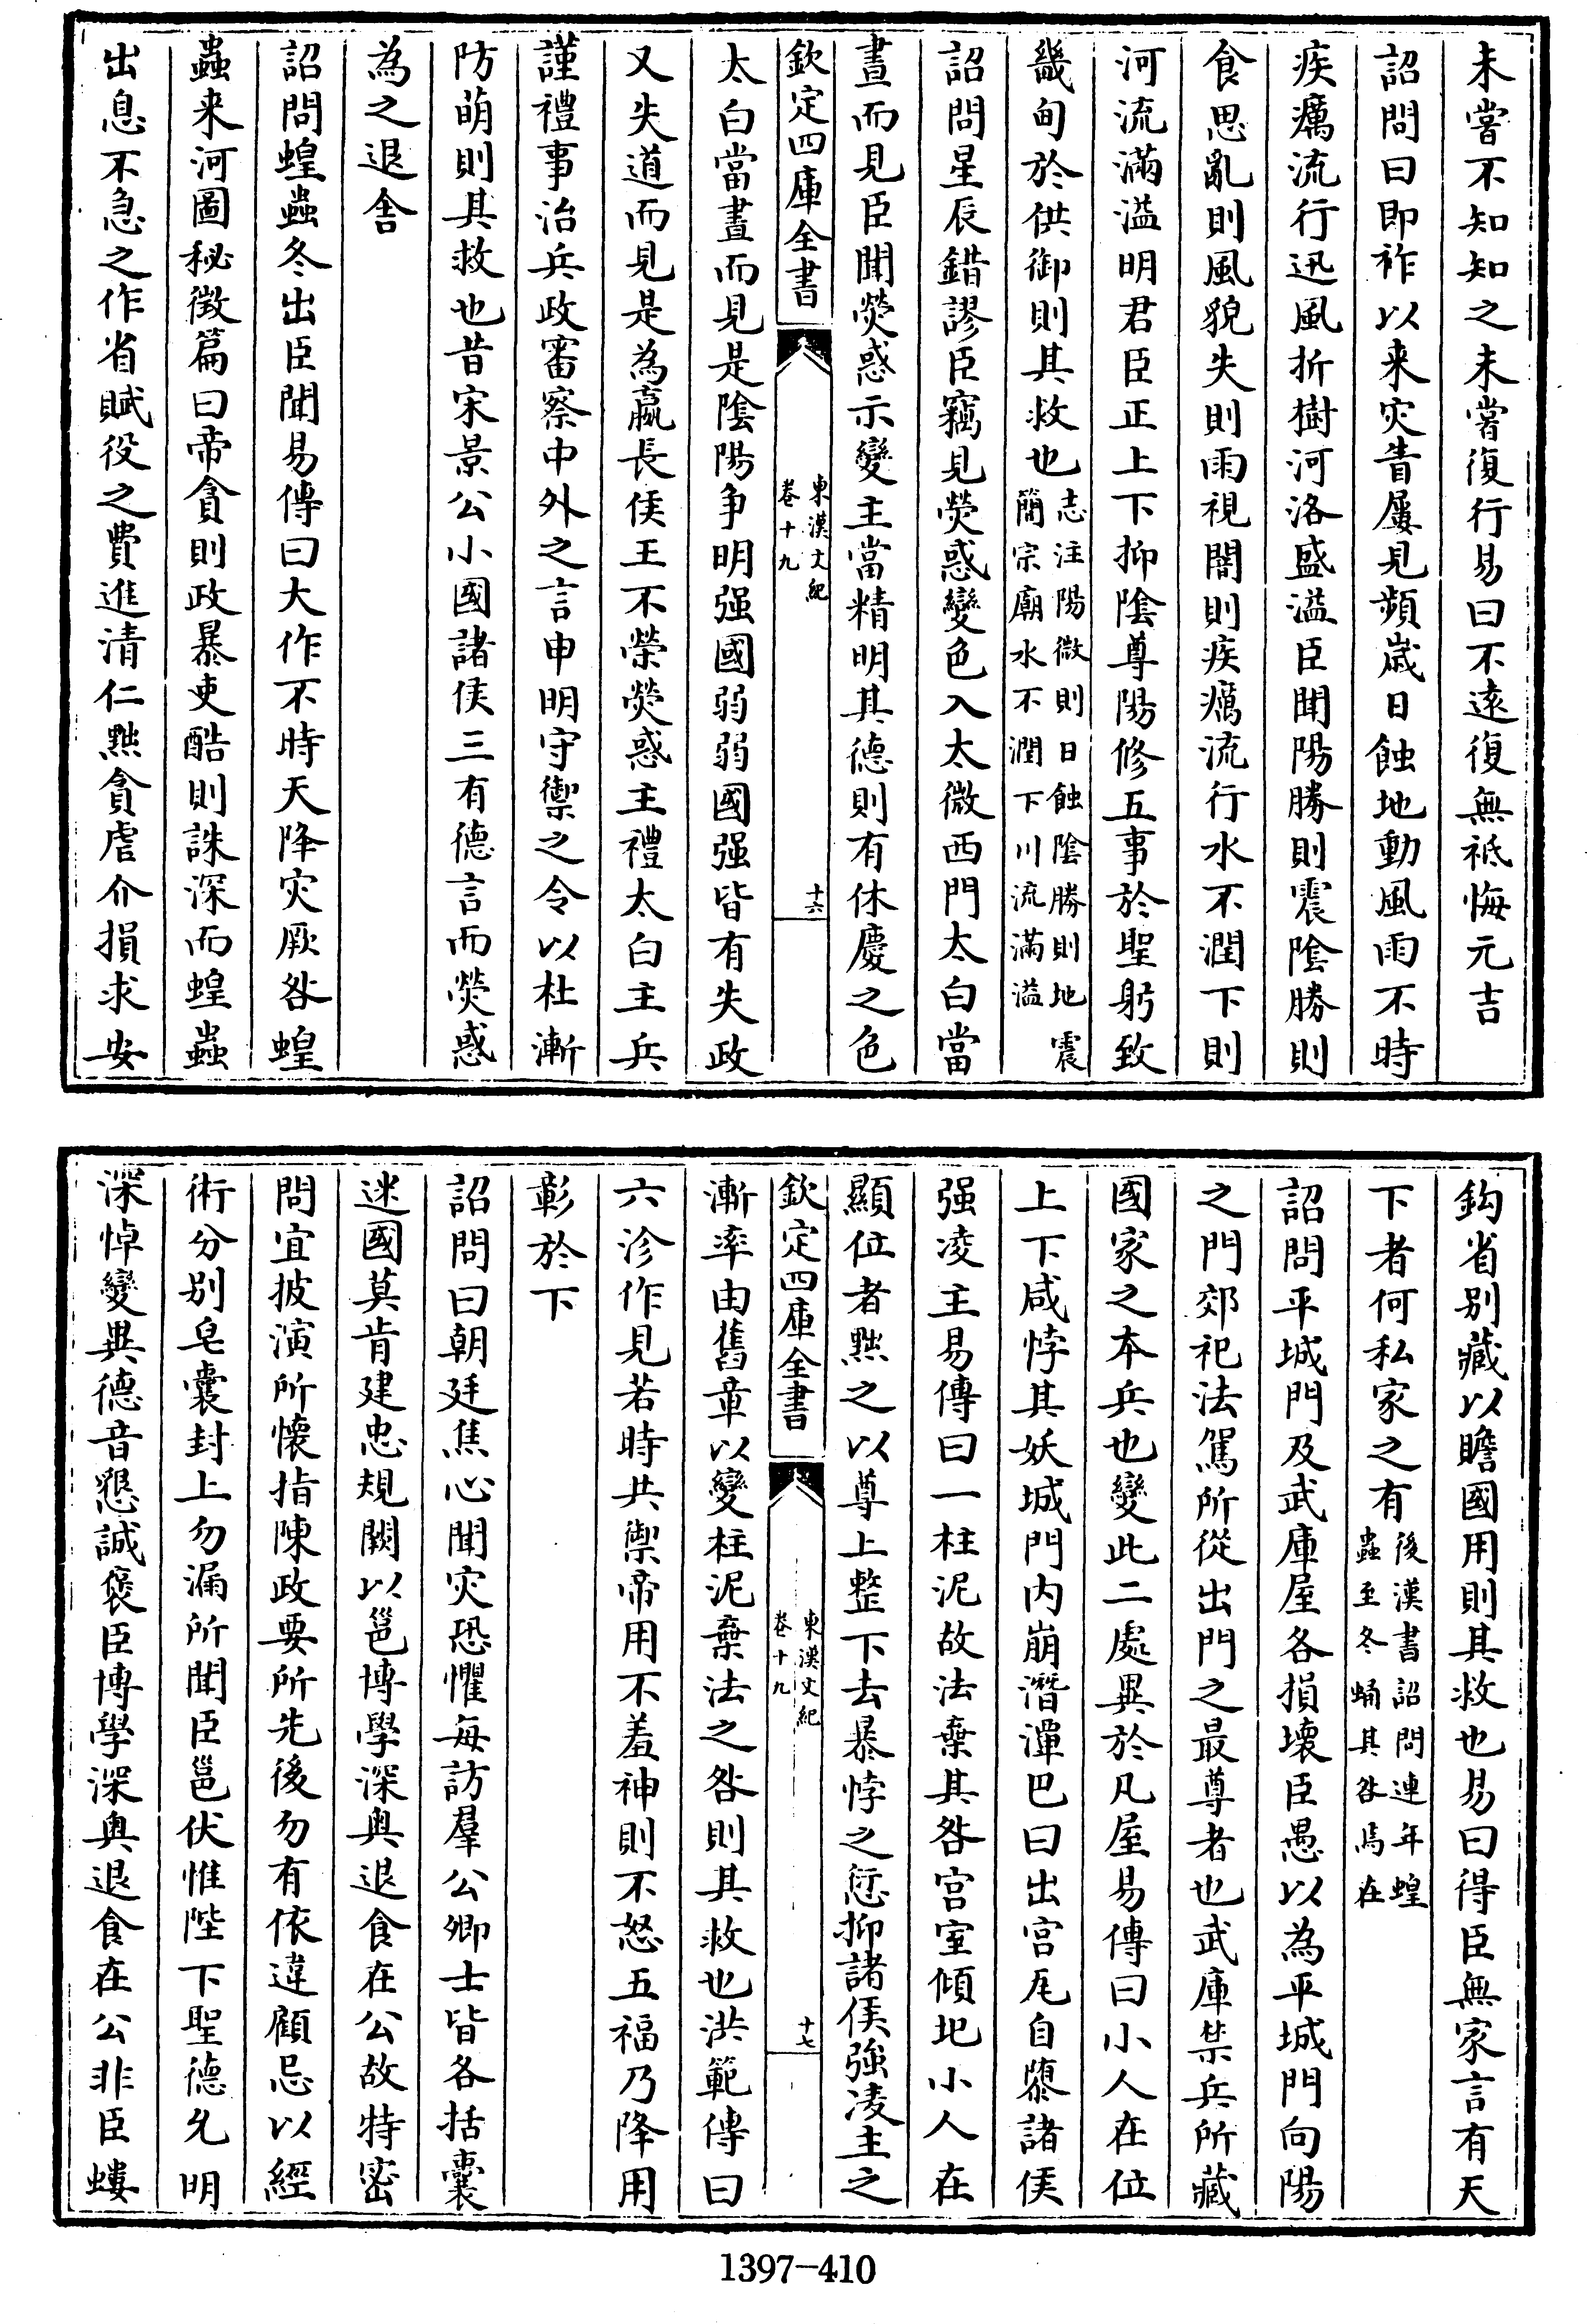 未嘗不知知之未嘗復行易曰不遠復無袛悔元吉
詔問曰即祚以来灾眚屢見頻嵗日蝕地動風雨不時
疾癘流行迅風折樹河洛盛溢臣聞陽勝則震隂勝則
食思亂則風貌失則雨視闇則疾癘流行水不潤下則
河流滿溢明君臣正上下抑隂尊陽修五事於聖躬致
畿甸於供御則其救也志注陽微則日蝕隂勝則地震
簡宗廟水不潤下川流滿溢
詔問星辰錯謬臣竊見熒惑變色入太微西門太白當
晝而見臣聞熒惑示變主當精明其德則有休慶之色
欽定四庫全書
東漢文紀
卷十九
十六
太白當晝而見是隂陽争明强國弱弱國强皆有失政
又失道而見是為嬴長侯王不榮熒惑主禮太白主兵
謹禮事治兵政審察中外之言申明守禦之令以杜漸
防萌則其救也昔宋景公小國諸侯三有德言而熒惑
為之退舍
詔問蝗蟲冬出臣聞易傳曰大作不時天降灾厥咎蝗
蟲来河圖秘徴篇曰帝貪則政暴吏酷則誅深而蝗蟲
出息不急之作省賦役之費進清仁黜貪虐介損求安
鈎省别藏以瞻國用則其救也易曰得臣無家言有天
下者何私家之有後漢書詔問連年蝗
蟲至冬蛹其咎焉在
詔問平城門及武庫屋各損壞臣愚以為平城門向陽
之門郊祀法駕所從出門之最尊者也武庫禁兵所藏
國家之本兵也變此二處異於凡屋易傳曰小人在位
上下咸悖其妖城門内崩潛潬巴曰出宫瓦自墮諸侯
强凌主易傳曰一柱泥故法棄其咎宫室傾圯小人在
顯位者黜之以尊上整下去暴悖之愆抑諸侯強凌主之
欽定四庫全書
東漢文紀
卷十九
十七
漸率由舊章以變柱泥棄法之咎則其救也洪範傳曰
六沴作見若時共禦帝用不羞神則不怒五福乃降用
彰於下
詔問曰朝廷焦心聞灾恐懼每訪羣公卿士皆各括囊
迷國莫肯建忠規闕以邕博學深奥退食在公故特密
問宜披演所懐指陳政要所先後勿有依違顧忌以經
術分别皂囊封上勿漏所聞臣邕伏惟陛下聖德允明
深悼變異德音懇誠褒臣博學深奥退食在公非臣螻
1397—410